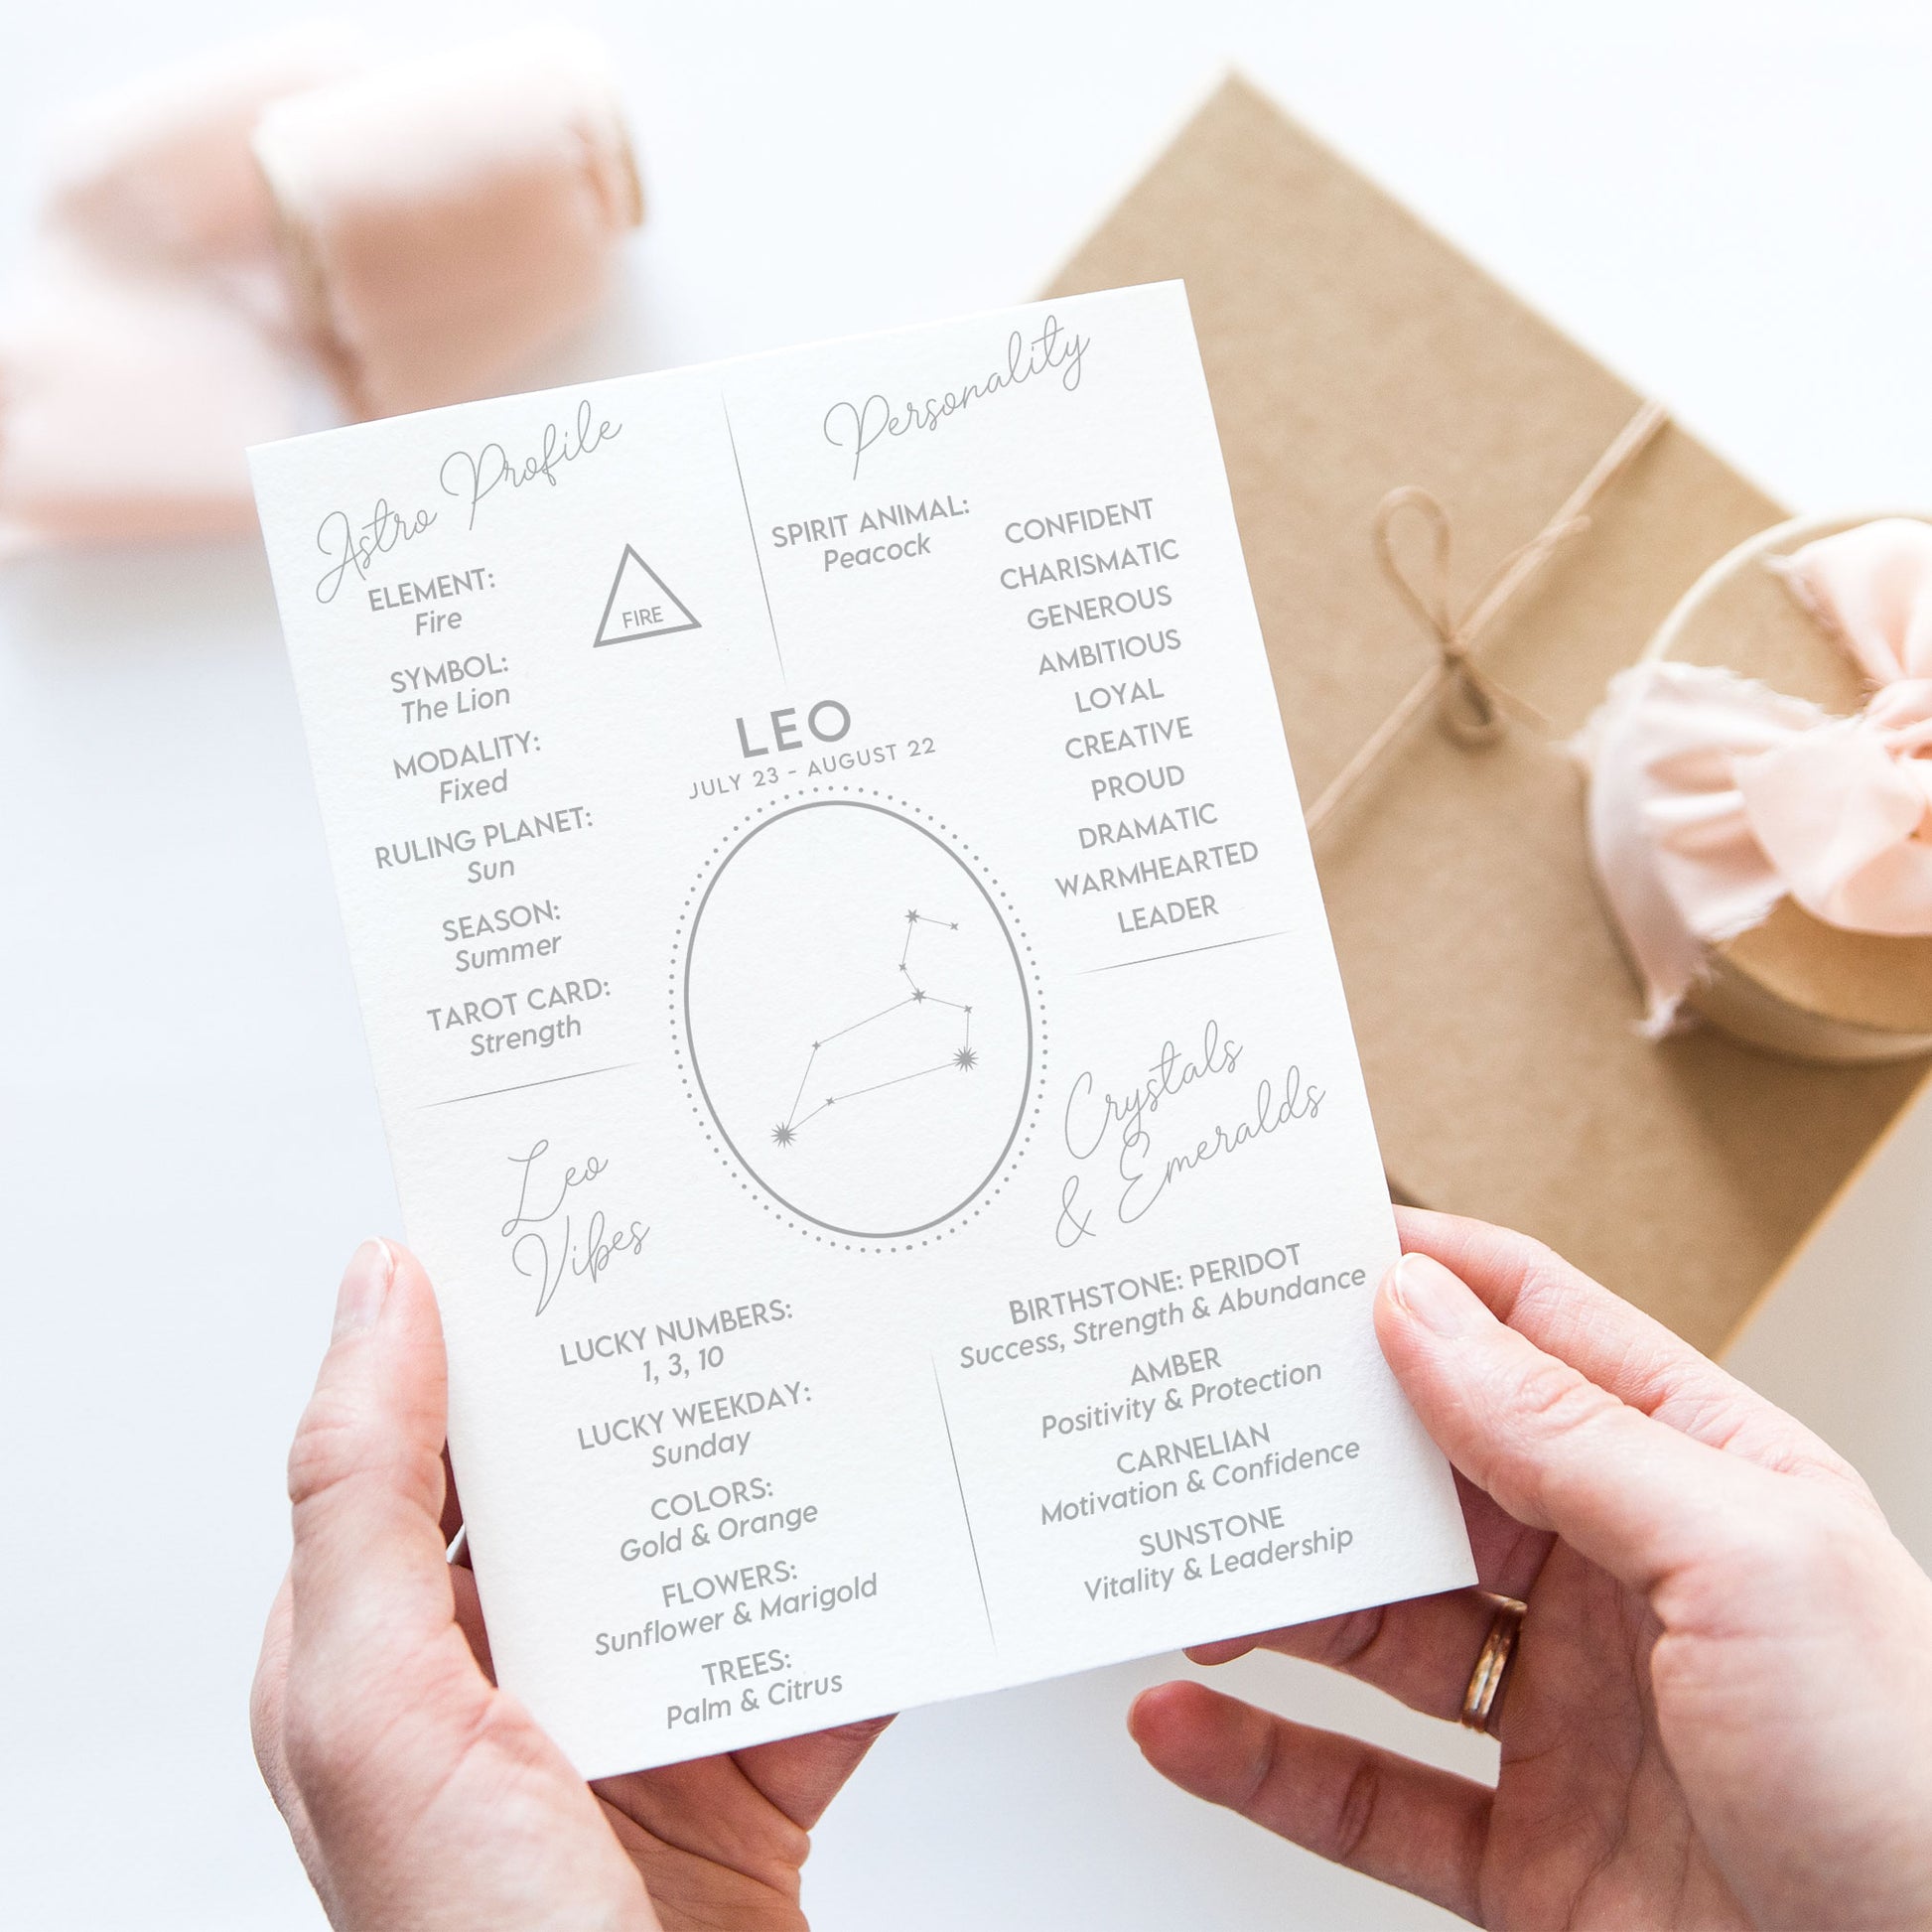 Astro Profile
ELEMENT:
Fire
FIRE
SYMBOL:
The Lion
MODALITY:
Fixed
RULING PLANET:
Sun
SEASON:
Summer
TAROT CARD:
Strength
Personality
SPIRIT ANIMAL:
Peacock
CONFIDENT
CHARISMATIC
GENEROUS
AMBITIOUS
LOYAL
CREATIVE
PROUD
DRAMATIC
WARMHEARTED
LEADER
LEO
JULY 23 - AUGUST 22
Leo
Vibes
LUCKY NUMBERS:
1, 3, 10
LUCKY WEEKDAY:
Sunday
COLORS:
Gold & Orange
FLOWERS:
Sunflower & Marigold
TREES:
Palm & Citrus
Crystals
& Emeralds
BIRTHSTONE: PERIDOT
Success, Strength & Abundance
AMBER
Positivity & Protection
CARNELIAN
Motivation & Confidence
SUNSTONE
Vitality & Leadership